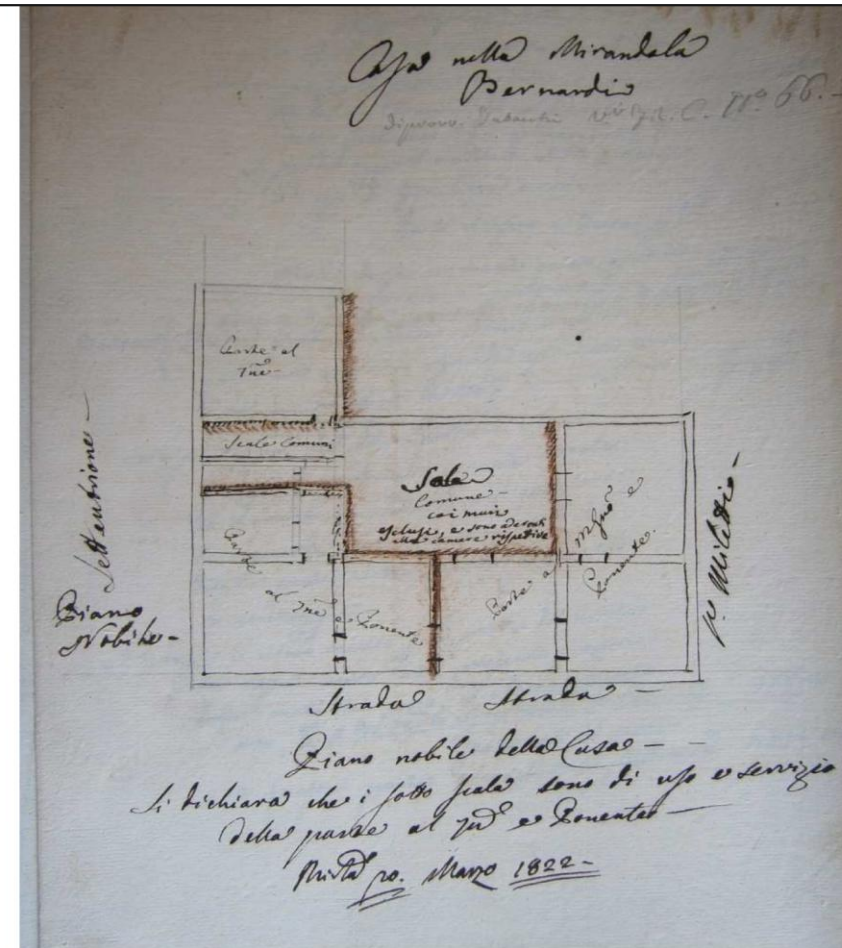 Casa nella Mirandola
Bernardi
No 66.
Parte al
Scale Comuni
Sala
Comune
coi muri
esclusi, e sono aderenti
alle camere rispettive
Settentrione
Piano
Nobile
Parte al
e Ponente
Parte a
e
Ponente.
Strada Strada
Piano nobile della Casa
Si dichiara che i sotto scala sono di uso e servizio
della parte al e Ponente
20. Marzo 1822